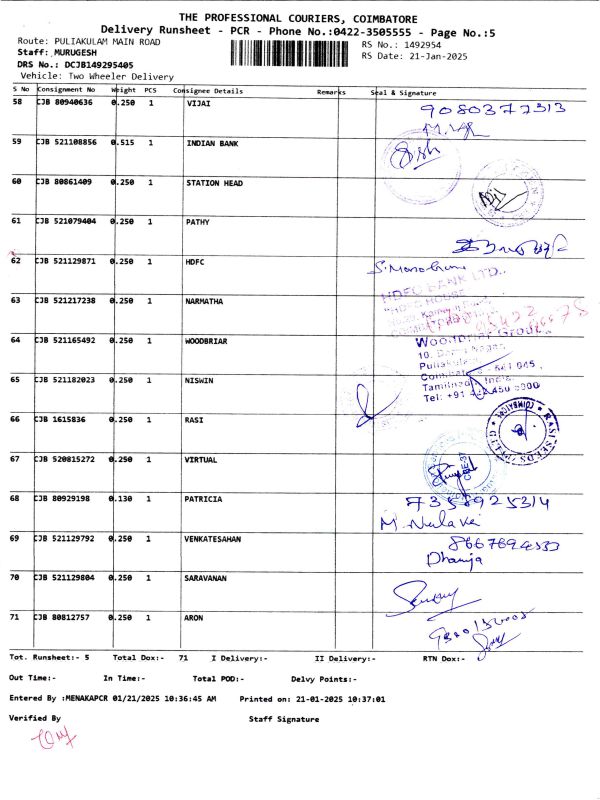 THE PROFESSIONAL COURIERS, COIMBATORE
Delivery Runsheet - PCR - Phone No.:0422-3505555 - Page No.:5
Route: PULIAKULAM MAIN ROAD
RS No.: 1492954
Staff: MURUGESH
RS Date: 21-Jan-2025
DRS No.: DCJB149295405
Vehicle: Two Wheeler Delivery
S No Consignment No Weight PCS Consignee Details Remarks Seal & Signature
58 CJB 80940636 0.250 1 VIJAI 9080377313
59 CJB 521108856 0.515 1 INDIAN BANK
60 CJB 80861409 0.250 1 STATION HEAD
61 CJB 521079404 0.250 1 PATHY
62 CJB 521129871 0.250 1 HDFC
HDFC BANK LTD.
63 CJB 521217238 0.250 1 NARMATHA
64 CJB 521165492 0.250 1 WOODBRIAR
Woodbriar Group
Tamilnadu, India.
65 CJB 521182023 0.250 1 NISWIN
66 CJB 1615836 0.250 1 RASI
RASI SEEDS (P) LTD
67 CJB 520815272 0.250 1 VIRTUAL
68 CJB 80929198 0.130 1 PATRICIA
69 CJB 521129792 0.250 1 VENKATESAHAN
Dhanija
70 CJB 521129804 0.250 1 SARAVANAN
71 CJB 80812757 0.250 1 ARON
Tot. Runsheet:- 5 Total Dox:- 71 I Delivery:- II Delivery:- RTN Dox:-
Out Time:- In Time:- Total POD:- Delvy Points:-
Entered By :MENAKAPCR 01/21/2025 10:36:45 AM Printed on: 21-01-2025 10:37:01
Verified By Staff Signature